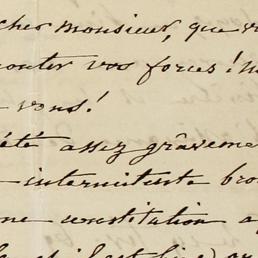 cher monsieur, que v
onter vos forces! 
- vous!
été assez grâveme
- intermittente bro
ne constitution a